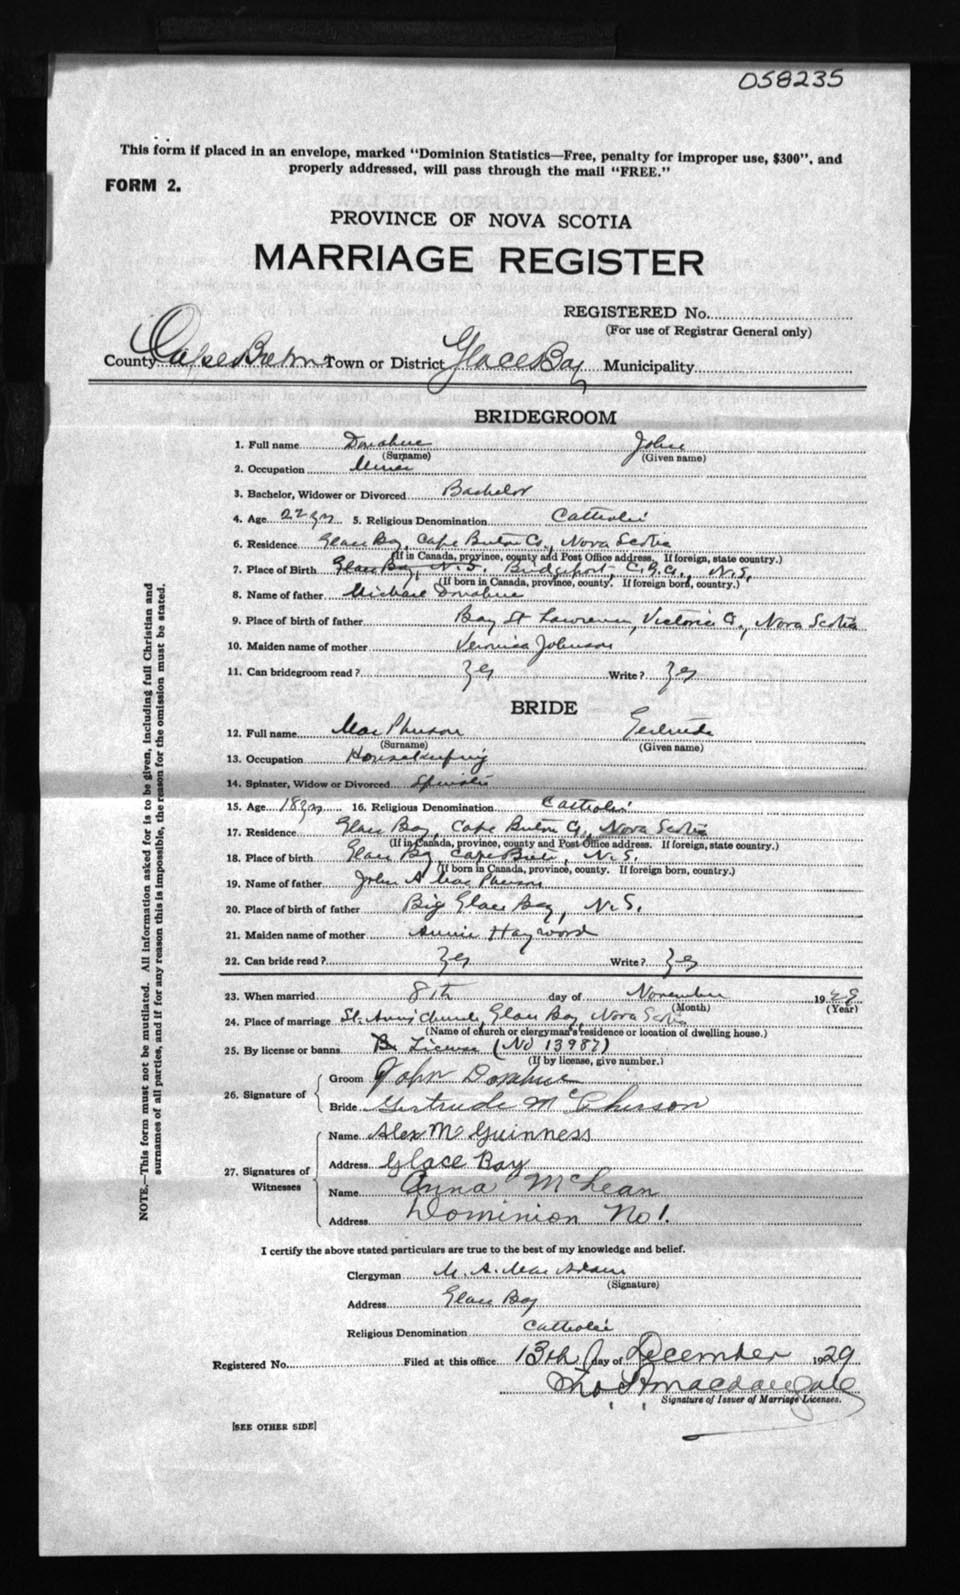 058235
This form if placed in an envelope, marked "Dominion Statistics—Free, penalty for improper use, $300", and
properly addressed, will pass through the mail "FREE."
FORM 2.
PROVINCE OF NOVA SCOTIA
MARRIAGE REGISTER
REGISTERED No.
(For use of Registrar General only)
County Cape Breton Town or District Glace Bay Municipality
BRIDEGROOM
1. Full name Donahue John
(Surname) (Given name)
2. Occupation Miner
3. Bachelor, Widower or Divorced Bachelor
4. Age 22 yrs 5. Religious Denomination Catholic
6. Residence Glace Bay, Cape Breton Co., Nova Scotia
(If in Canada, province, county and Post Office address. If foreign, state country.)
7. Place of Birth Glace Bay, N.S. Bridgeport, C.B.Co., N.S.
(If born in Canada, province, county. If foreign born, country.)
8. Name of father Michael Donahue
9. Place of birth of father Bay St Lawrence, Victoria Co., Nova Scotia
10. Maiden name of mother Veronica Johnson
11. Can bridegroom read? Yes Write? Yes
BRIDE
12. Full name MacPherson Gertrude
(Surname) (Given name)
13. Occupation Housekeeping
14. Spinster, Widow or Divorced Spinster
15. Age 18 yrs 16. Religious Denomination Catholic
17. Residence Glace Bay, Cape Breton Co, Nova Scotia
(If in Canada, province, county and Post Office address. If foreign, state country.)
18. Place of birth Glace Bay, Cape Breton, N.S.
(If born in Canada, province, county. If foreign born, country.)
19. Name of father John A MacPherson
20. Place of birth of father Big Glace Bay, N.S.
21. Maiden name of mother Annie Hayword
22. Can bride read? Yes Write? Yes
23. When married 8th day of November 19
(Month) (Year)
24. Place of marriage St. Ann's Church, Glace Bay, Nova Scotia
(Name of church or clergyman's residence or location of dwelling house.)
25. By license or banns By License (No 13987)
(If by license, give number.)
26. Signature of
Groom John Donahue
Bride Gertrude McPherson
27. Signatures of Witnesses
Name Alex McGuinness
Address Glace Bay
Name Anna McLean
Address Dominion No 1.
I certify the above stated particulars are true to the best of my knowledge and belief.
Clergyman M. A. MacAdam
(Signature)
Address Glace Bay
Religious Denomination Catholic
Registered No. Filed at this office 13th day of December 1929
Signature of Issuer of Marriage Licenses.
[SEE OTHER SIDE]
NOTE.—This form must not be mutilated. All information asked for is to be given, including full Christian and
surnames of all parties, and if for any reason this is impossible, the reason for the omission must be stated.